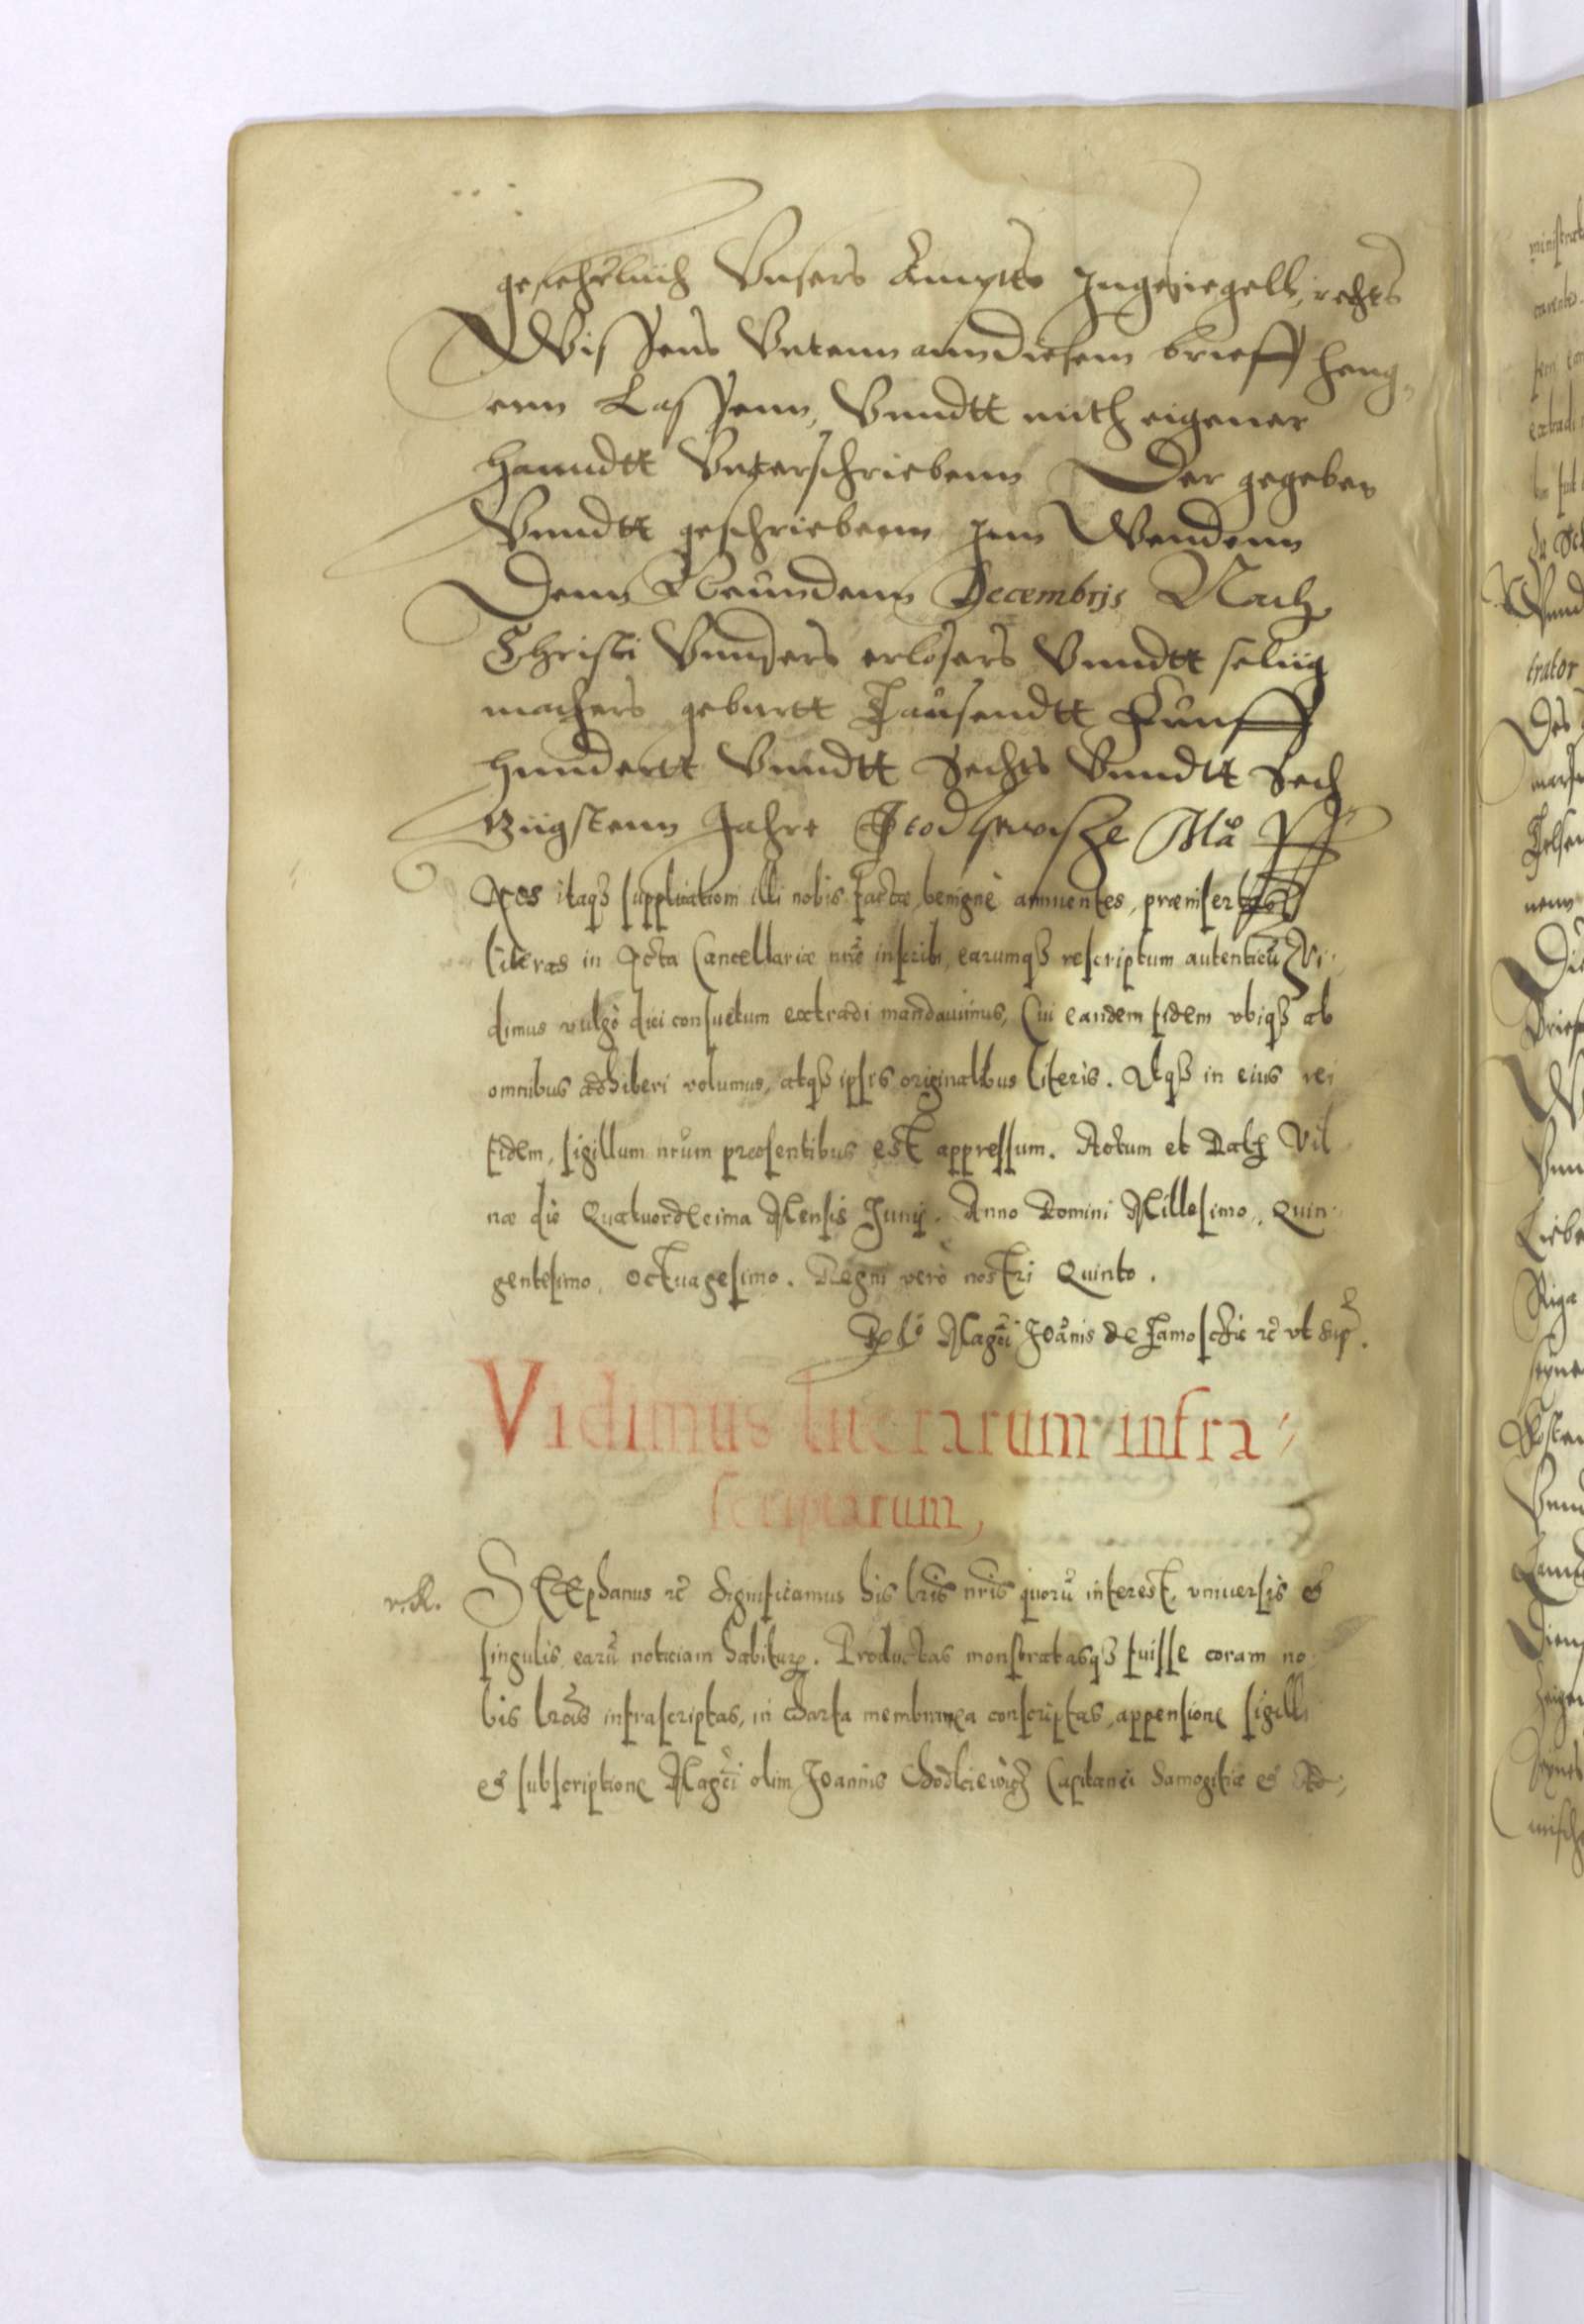 gefehrlich Vnsers Ampts Ingesiegell, rechts
Wissens Vntenn ann diesem brieff heng,
enn Lassenn, Vnndtt mith eigener
Hanndtt Vnterschriebenn Der gegeben
Vnndtt geschriebenn zum Wendenn
Denn Neundenn Decembrijs Nach
Christi Vnnsers erlosers Vnndtt seliig
machers geburtt Tausendtt Funff
hundertt Vnndtt Sechs Vnndtt Sech
ziigstenn Jahre
Nos itaqꝫ supplicationi illi nobis factæ, benignè annuentes, præinsertas
literas in Acta Cancellariæ nrẽ inscribi, earumqꝫ rescriptum autenticũ Vi,
dimus vulgò dici consuetum extradi mandauimus, Cui eandem fidem vbiqꝫ ab
omnibus adhiberi volumus, atqꝫ ipsis originalibus literis. Atqꝫ in eius rei
fidem, sigillum nrũm præsentibus est appressum. Actum et Datꝫ Vil
næ die Quatuordecima Mensis Junij. Anno Domini Millesimo, Quin
gentesimo, octuagesimo. Regni verò nostri Quinto.
Rlõ Magci Joãnis de Zamoschie ꝛc̃ vt sup.
Vidimus literarum infra
scriptarum,
v.R. STEphanus ꝛc̃ Significamus his lr̃is nr̃is quorũ interest, vniuersis &
singulis, earũ noticiam habiturꝫ. Productas monstratasqꝫ fuisse coram no
bis lrãs infrascriptas, in charta membranea conscriptas, appensione sigilli
& subscriptione Magci olim Joannis Chodkiewicz Capitanei Samogitiæ & Ad,